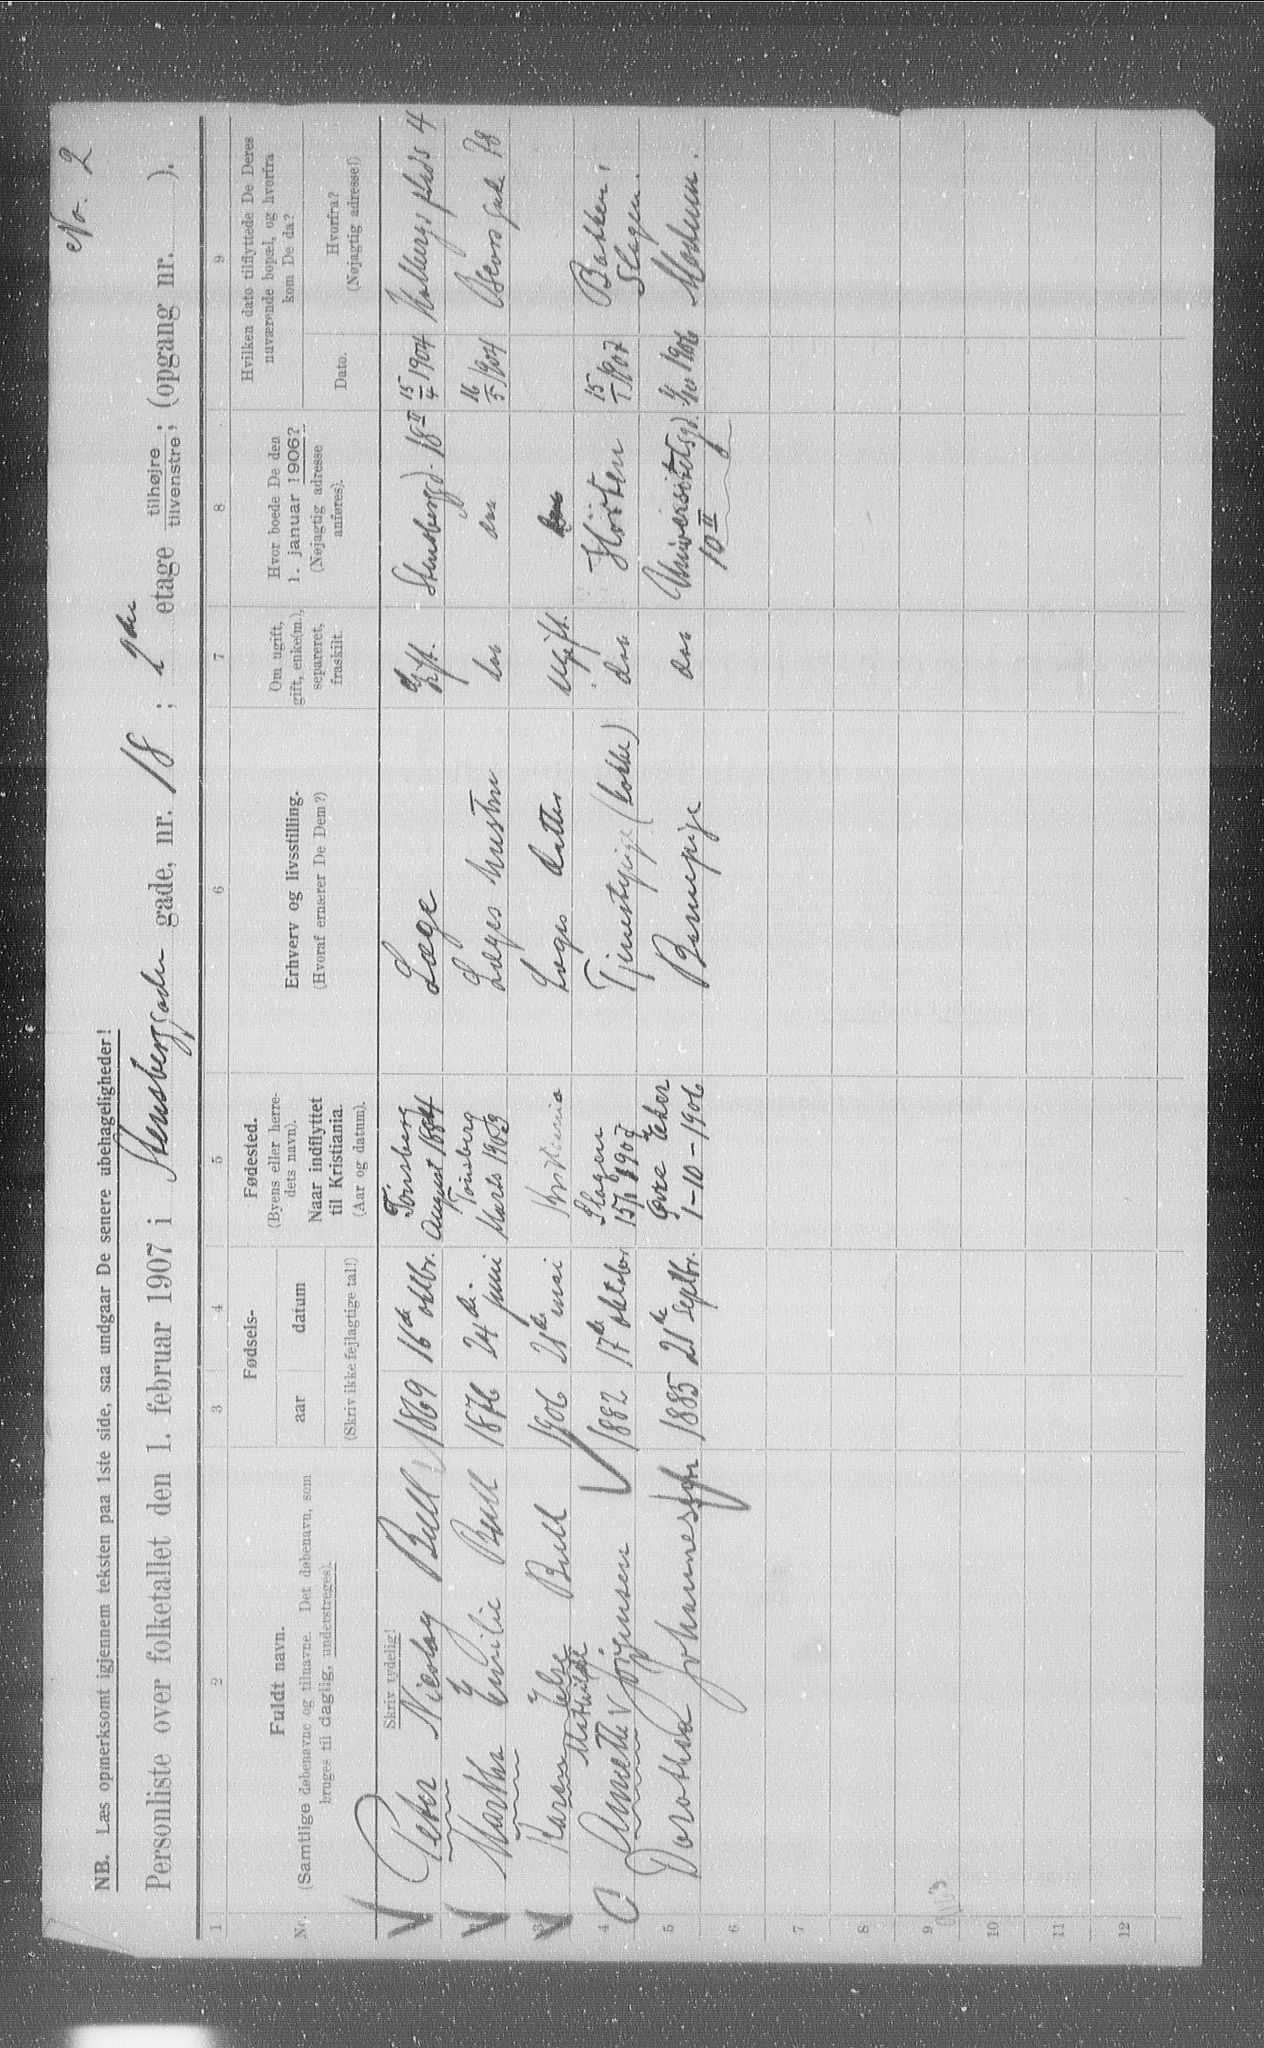 No. 2
NB. Læs opmerksomt igjennem teksten paa 1ste side, saa undgaar De senere ubehageligheder!
Personliste over folketallet den 1. februar 1907 i Stensberggaden gade, nr. 18; 2den etage tilhøjre tilvenstre; (opgang nr. ).
1 2 3 4 5 6 7 8 9
Nr.
Fuldt navn.
(Samtlige døbenavne og tilnavne. Det døbenavn, som
bruges til daglig, understreges).
Skriv tydelig!
Fødsels-
aar datum
(Skriv ikke fejlagtige tal!)
Fødested.
(Byens eller herre-
dets navn).
Naar indflyttet
til Kristiania.
(Aar og datum).
Erhverv og livsstilling.
(Hvoraf ernærer De Dem?)
Om ugift,
gift, enke(m.),
separeret,
fraskilt.
Hvor boede De den
1. januar 1906?
(Nøjagtig adresse
anføres).
Hvilken dato tilflyttede De Deres
nuværende bopæl, og hvorfra
kom De da?
Dato.
Hvorfra?
(Nøjagtig adresse!)
Peter Nicolay Bull 1869 16de oktbr. Tönsberg August 1884 Læge Gift. Stensberggd. 18 II 15/4 1904 Holbergs plads 4
Martha Emilie Bull 1876 24de juni Tönsberg Marts 1903 Læges hustru do 16/5 1904 Oscars gade 78
3 Karen Else Mathilde Bull 1906 21de mai Kristiania Læges datter Ugift.
4 Annette Jörgensen 1882 17de oktober Slagen 15/1 1907 Tjenestepige (kokke) do Horten 15/1 1907 Bakken, Slagen.
5 Dorothea Johannessen 1885 21de Septbr. Övre Eker 1-10-1906 Barnepige do Universitetsgd. 10 II 1/10 1906 Modum.
6
7
8
9
10
11
12